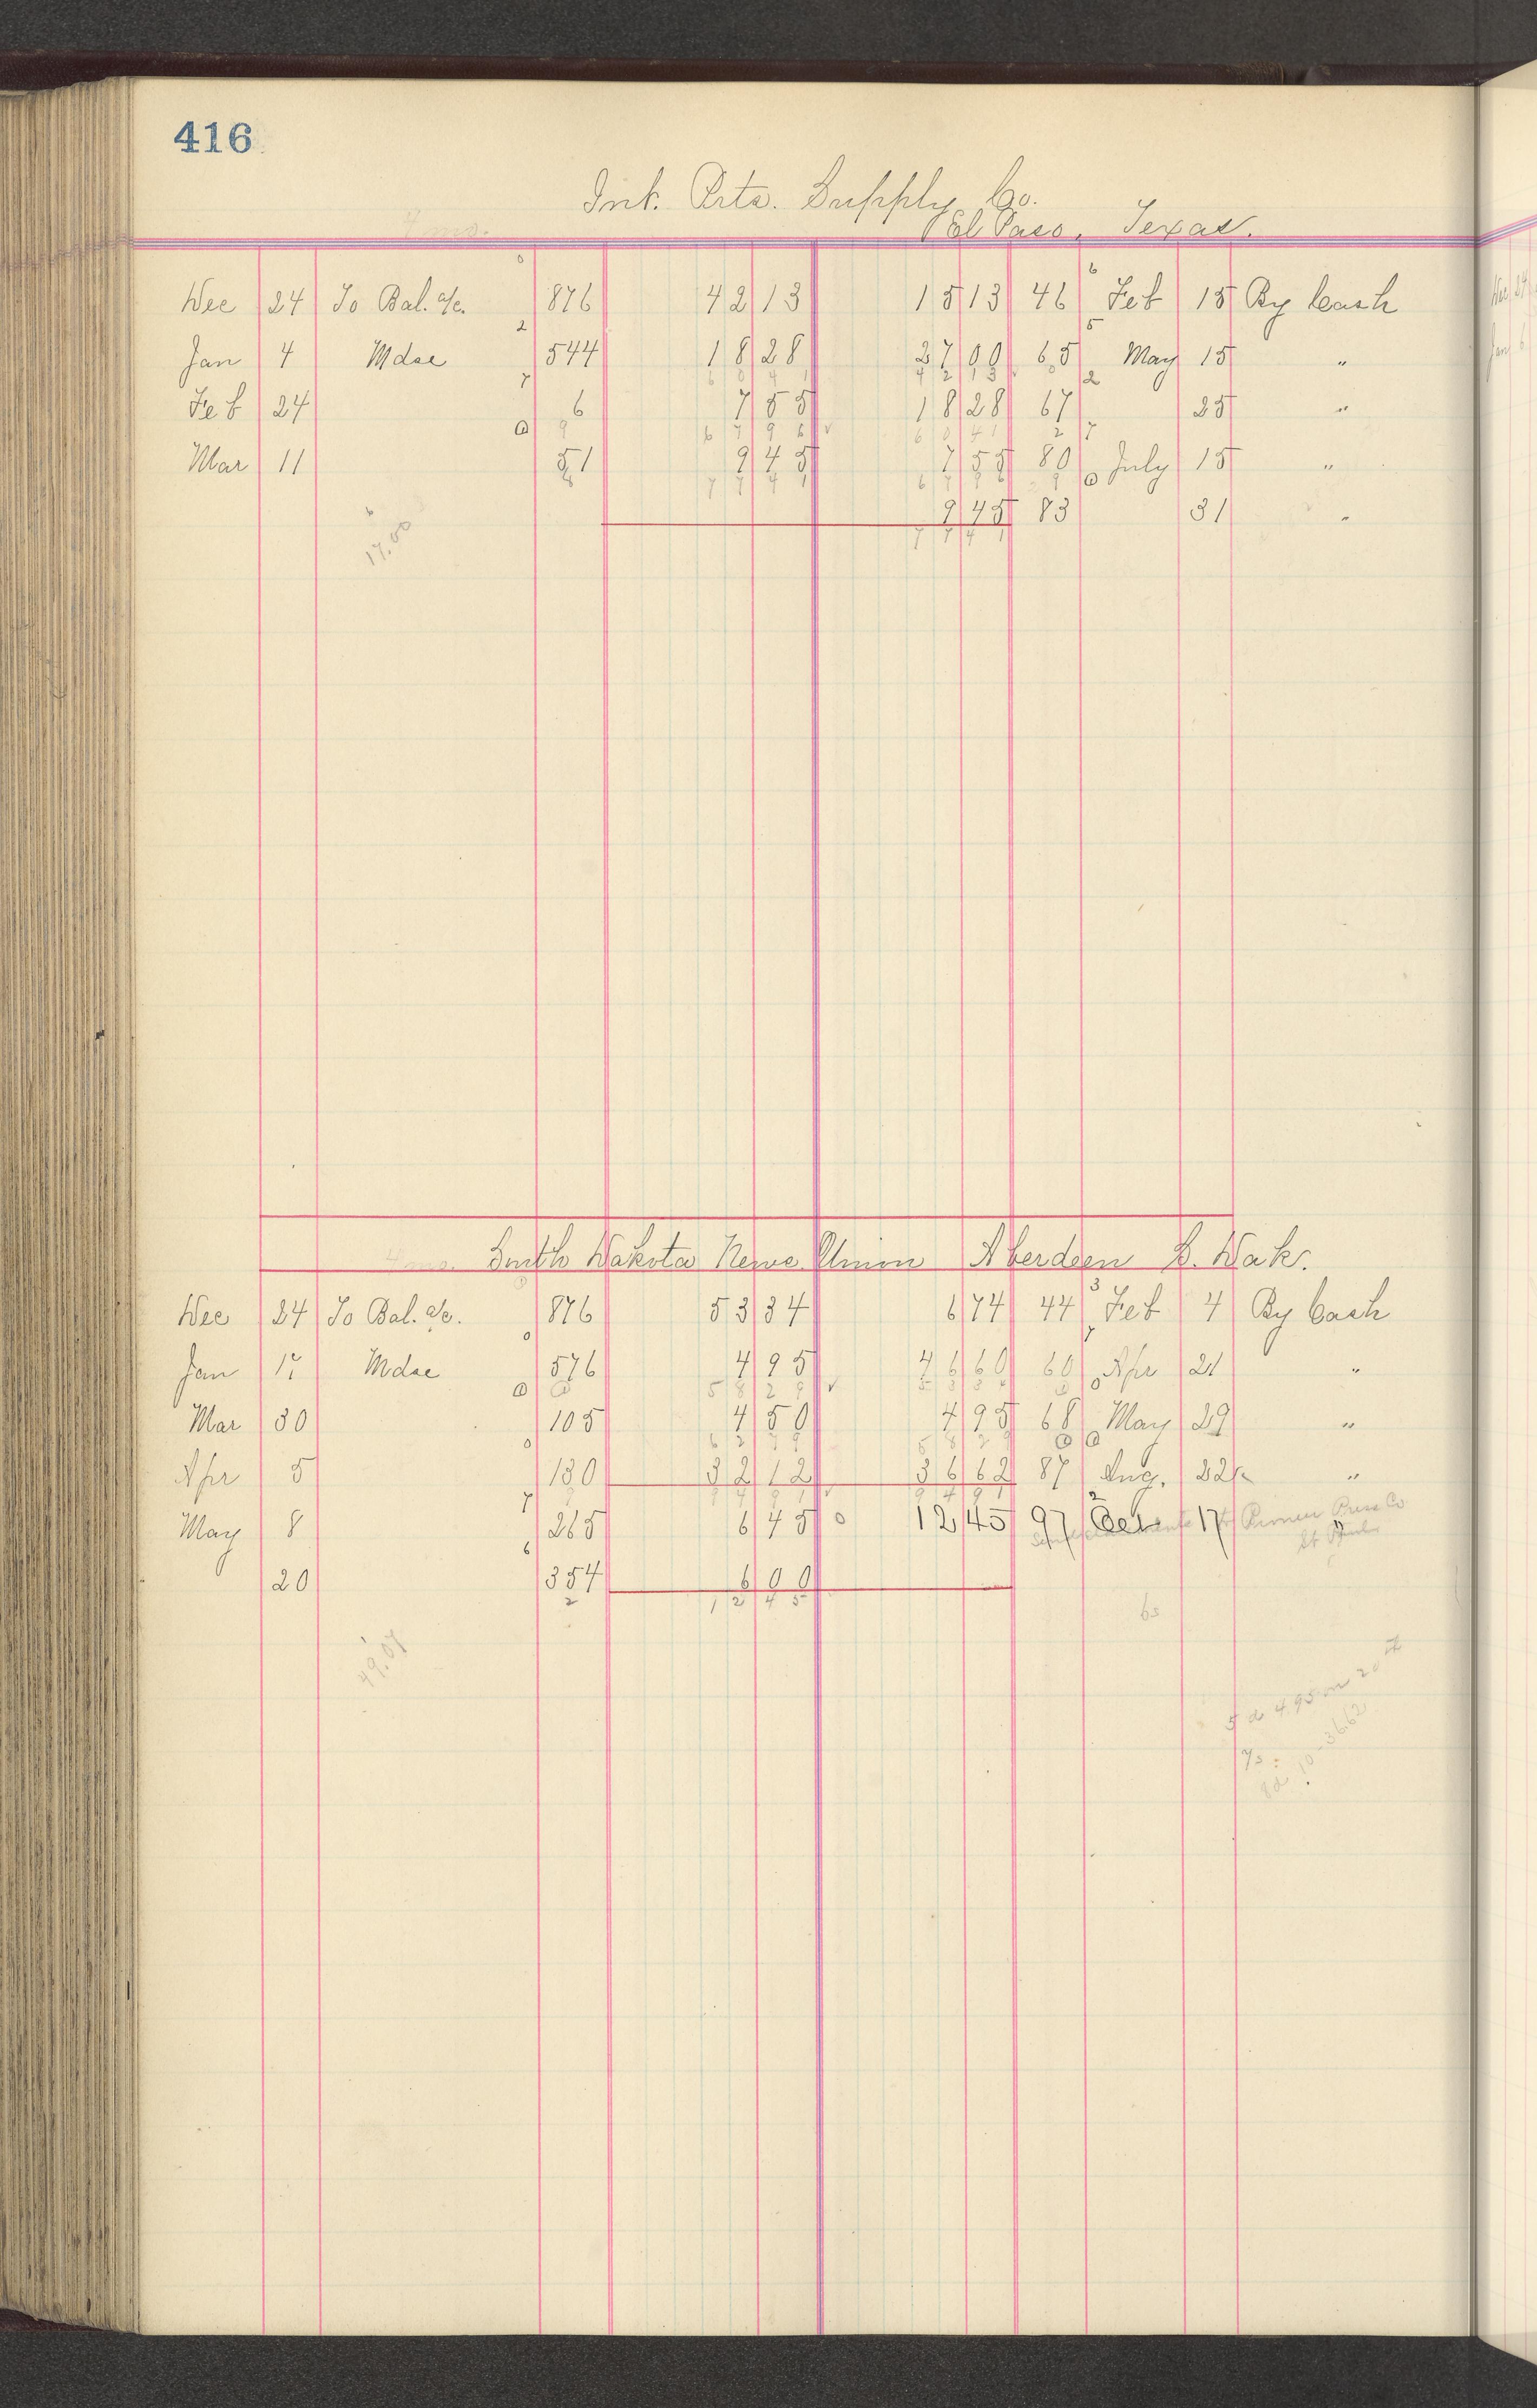 416
Int. Ptg. Supply Co.
4 mo.
El Paso, Texas.
Dec 24 To Bal. a/c. 876 42 13 15 13 46 Feb 15 By Cash
Jan 4 Mdse 544 18 28 27 00 65 May 15 "
Feb 24 6 7 55 18 28 67 25 "
Mar 11 51 9 45 7 55 80 July 15 "
9 45 83 31 "
17.00
4 mo. South Dakota News Union Aberdeen S. Dak.
Dec 24 To Bal. a/c. 876 53 34 6 74 44 Feb 4 By Cash
Jan 17 Mdse 576 4 95 46 60 60 Apr 21 "
Mar 30 105 4 50 4 95 68 May 29 "
Apr 5 130 32 12 36 62 87 Aug. 22 "
May 8 265 6 45 12 45 97 Oct 17 " Pioneer Press Co
St Paul
20 354 6 00
12 45
49.07
5 d 4.95 on 20th
10-3662